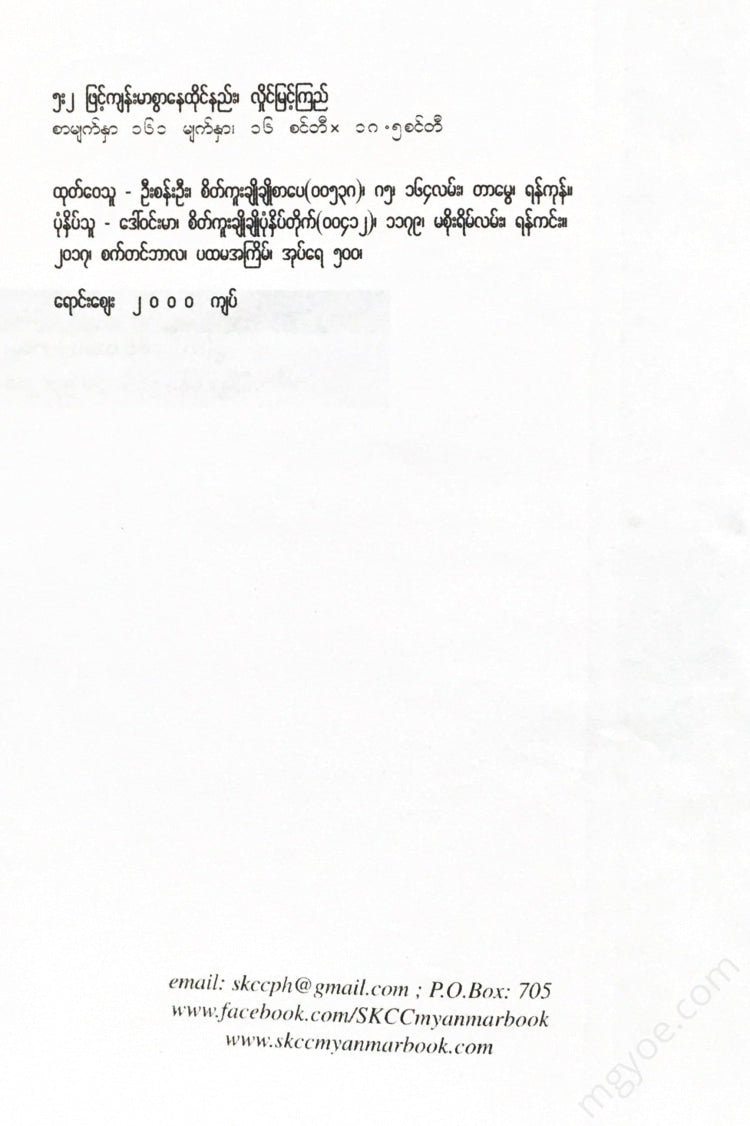 ၅း၂ ဖြင့်ကျန်းမာစွာနေထိုင်နည်း၊ လှိုင်မြင့်ကြည်
စာမျက်နှာ ၁၆၁ မျက်နှာ၊ ၁၆ စင်တီ× ၁၈.၅စင်တီ
ထုတ်ဝေသူ - ဦးစန်းဦး၊ စိတ်ကူးချိုချိုစာပေ(၀၀၅၃၈)၊ ဂ၅၊ ၁၆၄လမ်း၊ တာမွေ၊ ရန်ကုန်။
ပုံနှိပ်သူ - ဒေါ်ဝင်းမာ၊ စိတ်ကူးချိုချိုပုံနှိပ်တိုက်(၀၀၄၁၂)၊ ၁၁၇၉၊ မစိုးရိမ်လမ်း၊ ရန်ကင်း။
၂၀၁၇၊ စက်တင်ဘာလ၊ ပထမအကြိမ်၊ အုပ်ရေ ၅၀၀၊
ရောင်းဈေး ၂ ၀ ၀ ၀ ကျပ်
email: skccph@gmail.com ; P.O.Box: 705
www.facebook.com/SKCCmyanmarbook
www.skccmyanmarbook.com
mgyoe.com